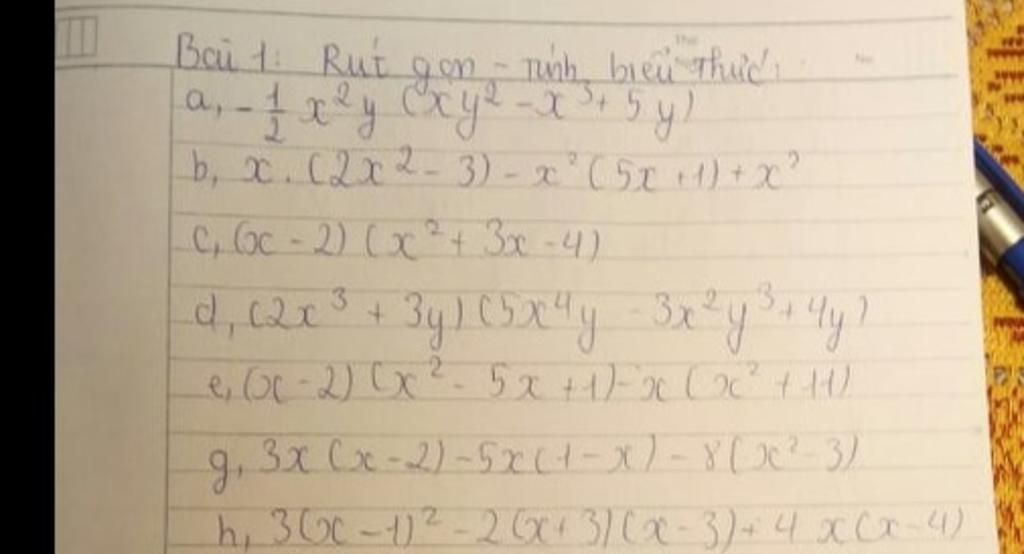 Bài 1: Rút gọn - Tính biểu thức:
a, -1/2 x²y (xy² - x³ + 5y)
b, x . (2x² - 3) - x²(5x + 1) + x²
c, (x - 2) (x² + 3x - 4)
d, (2x³ + 3y) (5x⁴y - 3x²y³ + 4y)
e, (x - 2) (x² - 5x + 1) - x (x² + 11)
g, 3x (x - 2) - 5x(1 - x) - 8(x² - 3)
h, 3(x - 1)² - 2(x + 3)(x - 3) + 4x(x - 4)